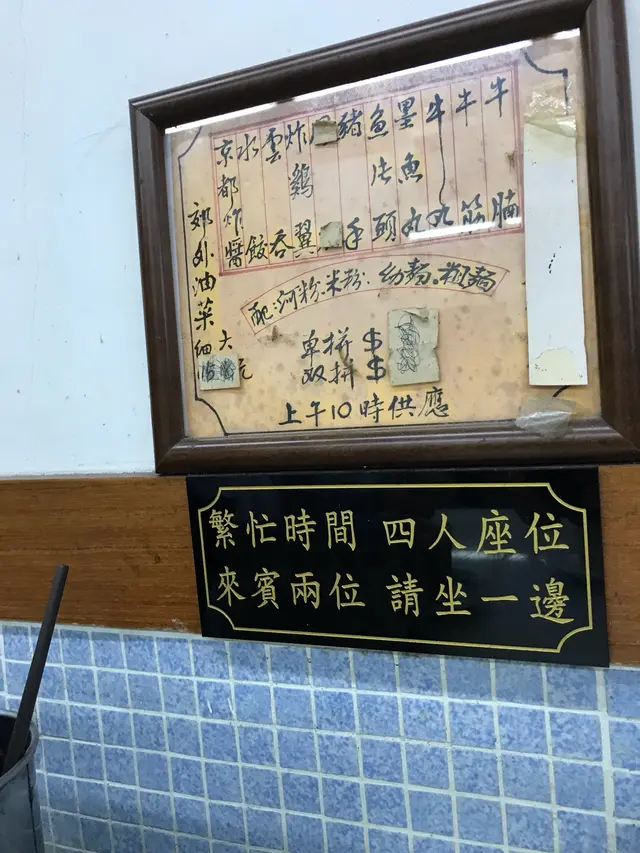 牛腩
牛筋
牛丸
墨魚丸
魚片頭
豬手
炸鷄翼
雲吞
水餃
京都炸醬
郊外油菜 大細 元
配:河粉.米粉.幼麵.粗麵
单拼 $
双拼 $
上午10時供應
繁忙時間 四人座位
來賓兩位 請坐一邊